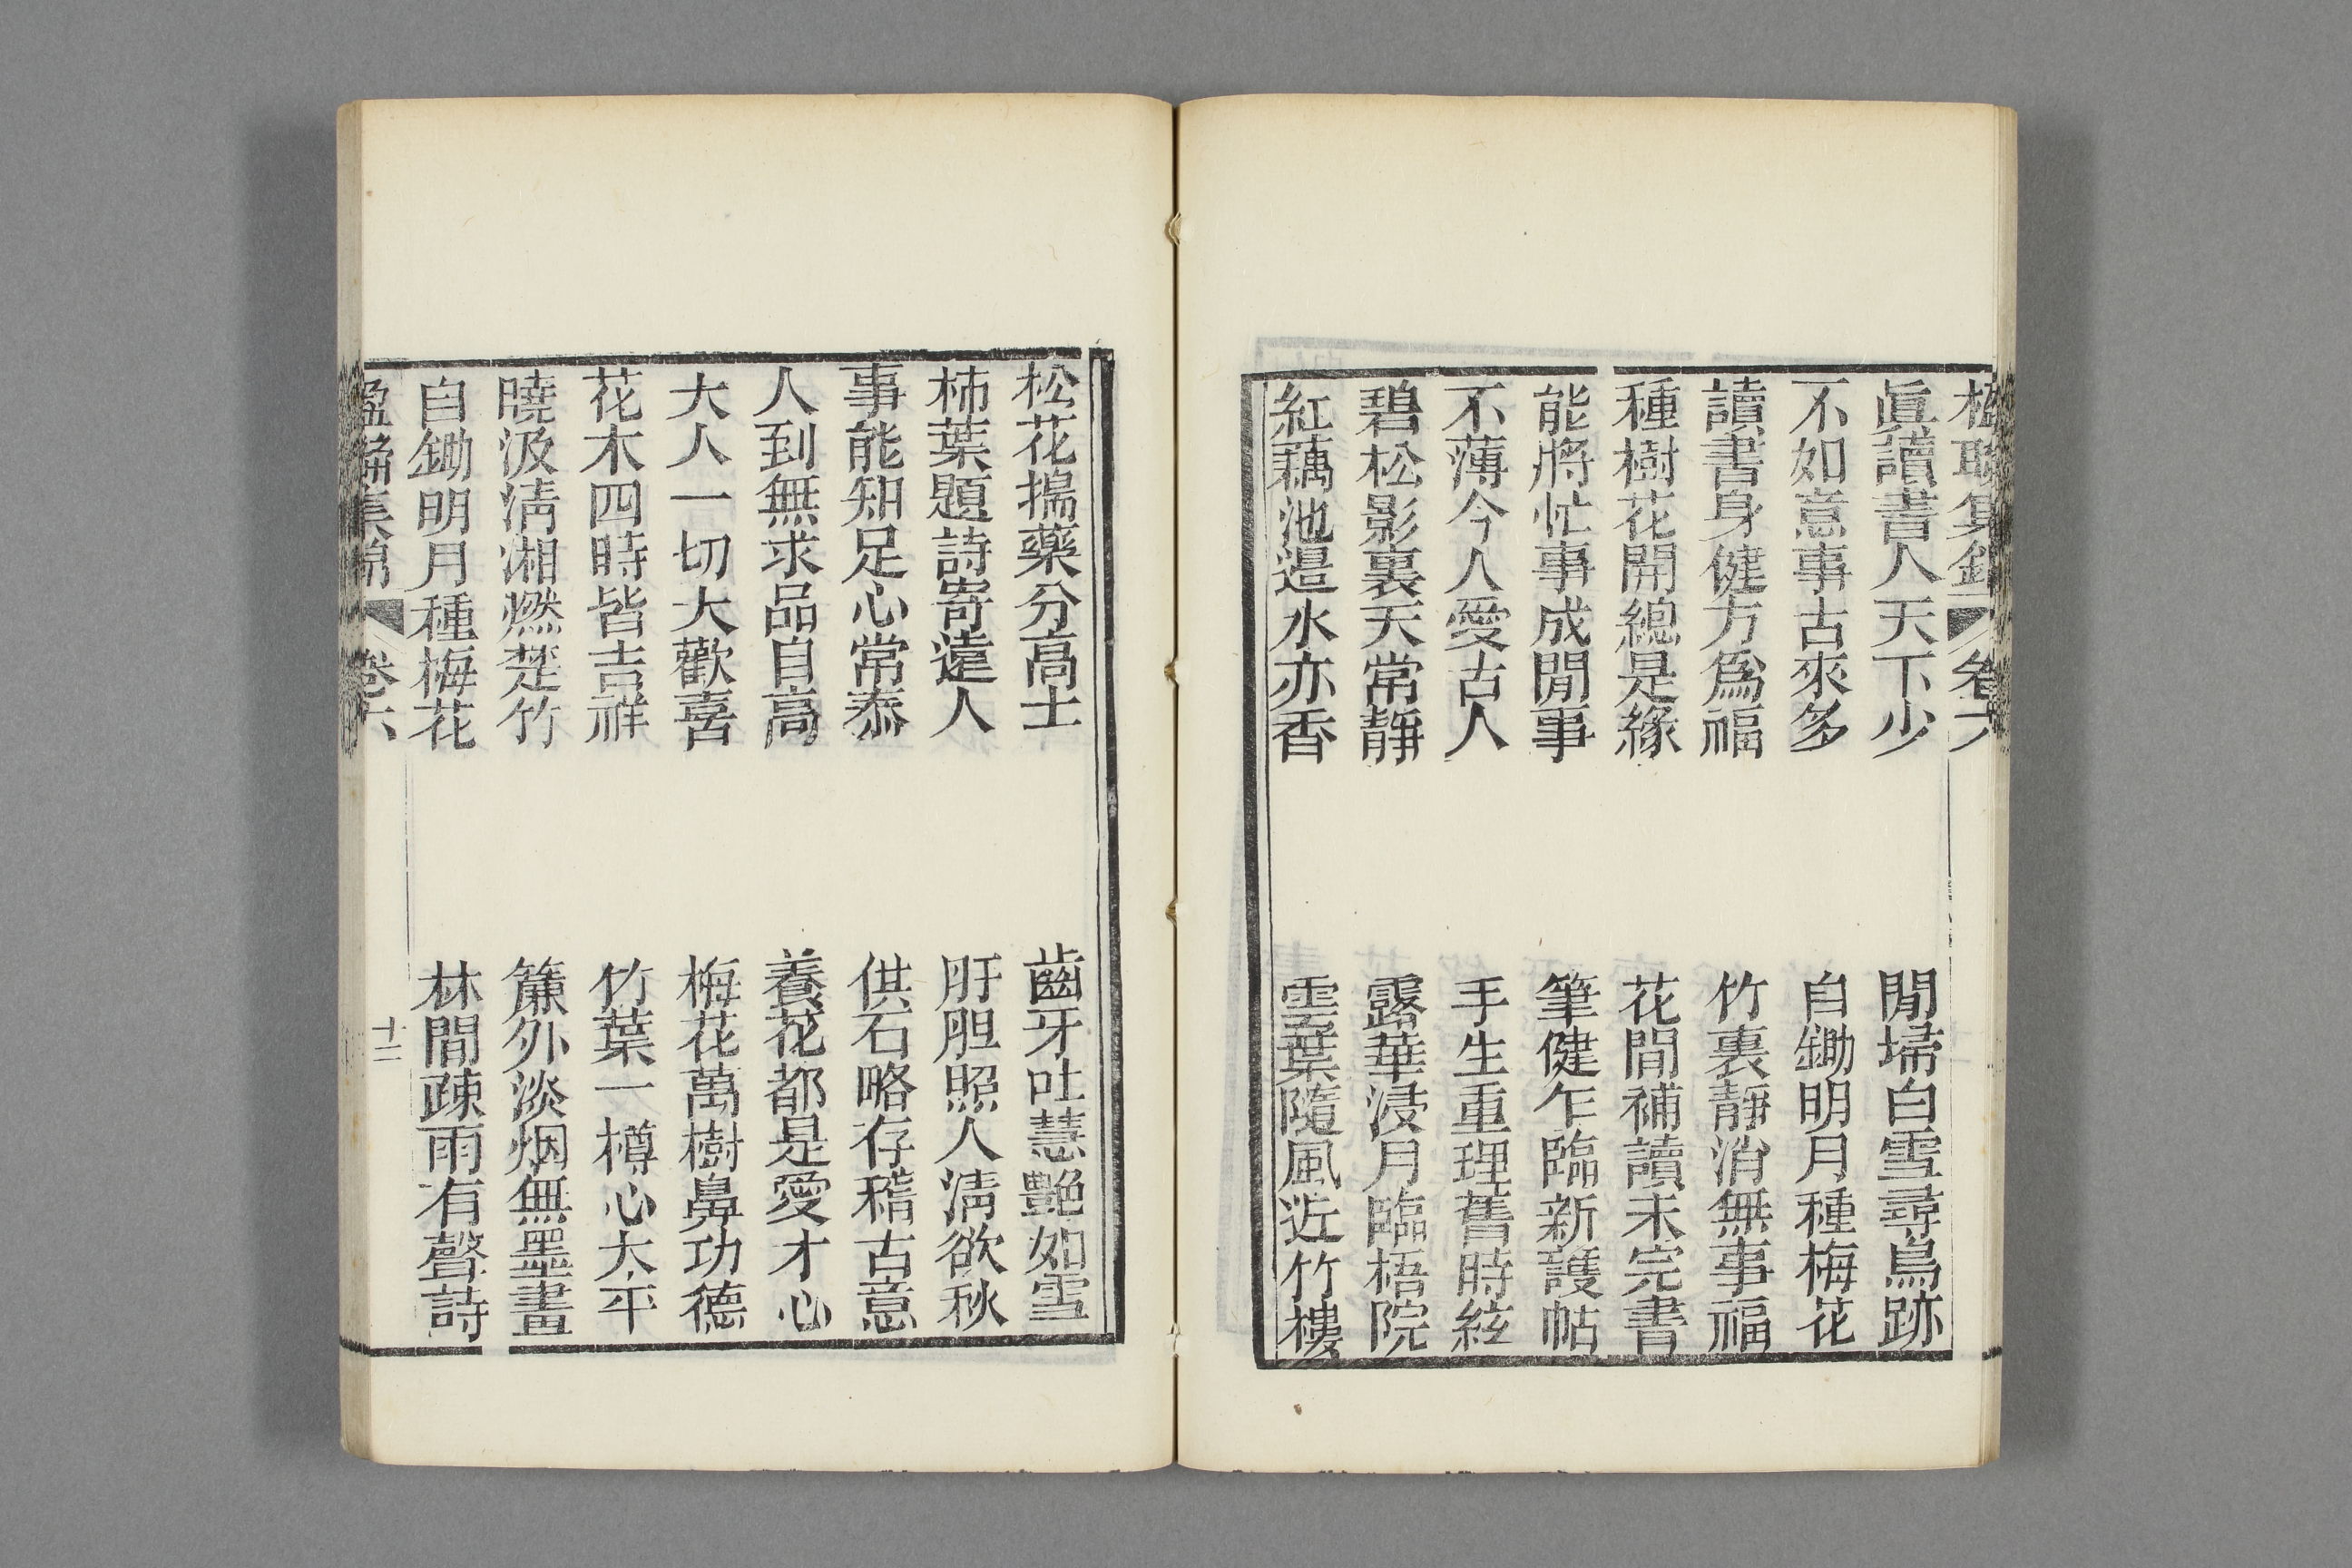 眞讀書人天下少
閒埽白雪尋鳥跡
不如意事古來多
自鋤明月種梅花
讀書身健方爲福
竹裏靜消無事福
種樹花開總是緣
花間補讀未完書
能將忙事成閒事
筆健乍臨新䕶帖
不薄今人愛古人
手生重理舊時絃
碧松影裏天常靜
露華浸月臨梧院
紅藕池邊水亦香
雲葉隨風近竹樓
松花搗藥分高士
齒牙吐慧艷如雪
柿葉題詩寄遠人
肝胆照人淸欲秋
事能知足心常泰
供石略存稽古意
人到無求品自高
養花都是愛才心
大人一切大歡喜
梅花萬樹鼻功德
花木四時皆吉祥
竹葉一樽心太平
曉汲淸湘燃楚竹
簾外淡烟無墨畫
自鋤明月種梅花
林間疎雨有聲詩
卷六
十二